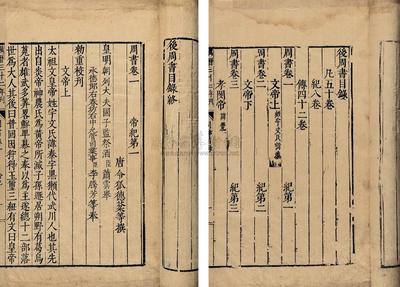 後周書目錄
凡五十卷
紀八卷
傳四十二卷
周書卷一 紀第一
文帝上
周書卷二 紀第二
文帝下
周書卷三 紀第三
孝閔帝
後周書目錄終
周書卷一 帝紀第一
唐令狐德棻等撰
皇明朝列大夫國子監祭酒臣蕭雲舉
承德郎右春坊右中允管司業事臣李騰芳等奉
勅重校刊
文帝上
太祖文皇帝姓宇文氏諱泰字黑獺代武川人也其先
出自炎帝神農氏為黃帝所滅子孫遯居朔野有葛烏
菟者雄武多算畧鮮卑慕之奉以為主遂總十二部落
世為大人其後曰普回因狩得玉璽三紐有文曰皇帝